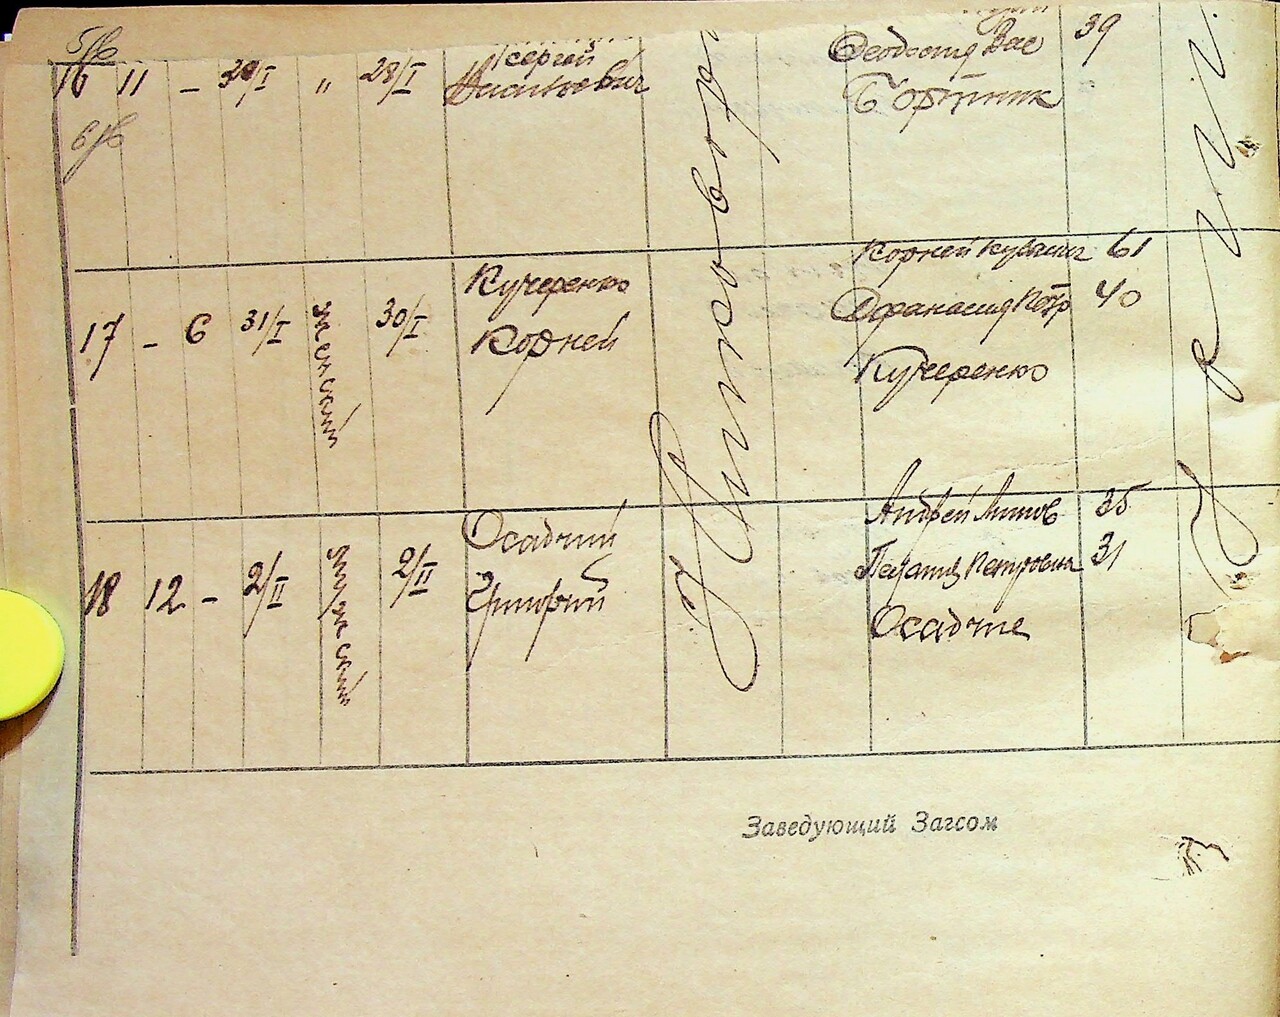 5/б
Сергей Феодосия Вас 39
16 11 – 29/I " 28/I Васильевич Бортник
6/б
Корней Кузьмич 61
Кучеренко Афанасия Петр 40
17 – 6 31/I женский 30/I Корней
Кучеренко
Андрей 35
Осадчий Пелагия Петровна 31
18 12 – 2/II мужской 2/II Григорий
Осадчие
Заведующий Загсом